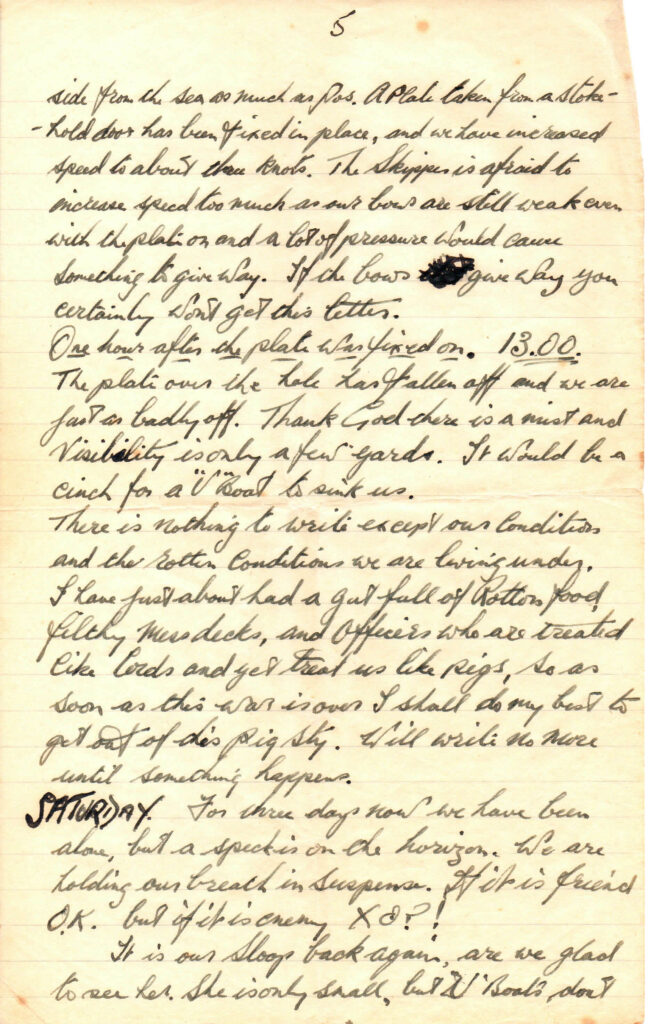 5
side from the sea as much as Pos. A Plate taken from a stoke-
-hold door has been fixed in place, and we have increased
speed to about three knots. The Skipper is afraid to
increase speed too much as our bows are still weak even
with the plate on and a lot of pressure would cause
something to give way. If the bows give way you
certainly won't get this letter.
One hour after the plate was fixed on. 13.00.
The plate over the hole has fallen off and we are
just as badly off. Thank God there is a mist and
visibility is only a few yards. It would be a
cinch for a "U" Boat to sink us.
There is nothing to write except our conditions
and the rotten conditions we are living under.
I have just about had a gut full of Rotton food,
filthy Messdecks, and Officers who are treated
like lords and yet treat us like pigs, so as
soon as this war is over I shall do my best to
get out of this pig sty. Will write no more
until something happens.
SATURDAY. For three days now we have been
alone, but a speck is on the horizon. We are
holding our breath in suspense. If it is friend
O.K. but if it is enemy X @?!
It is our sloop back again, are we glad
to see her. She is only small, but "U" Boats don't